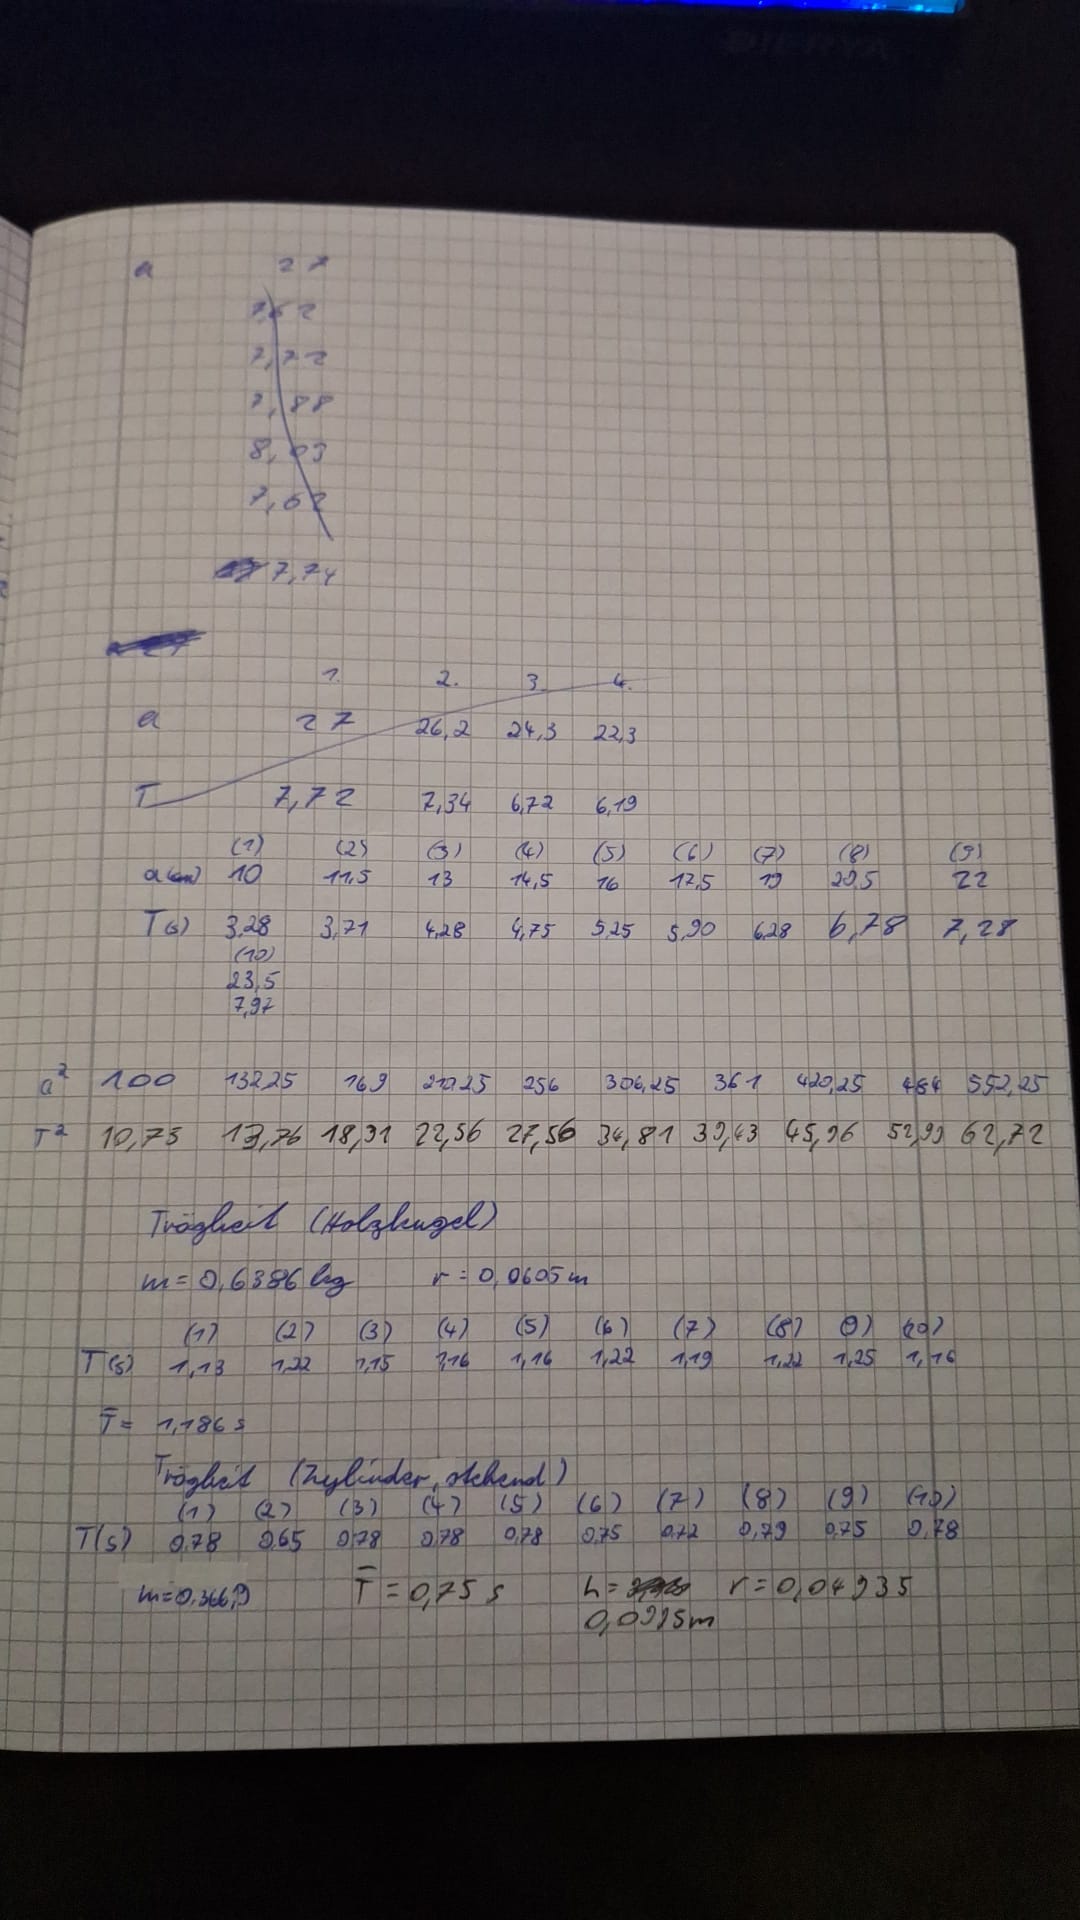 a 27
7,62
7,72
7,88
8,03
7,62
7,74
1. 2. 3. 4.
a 27 26,2 24,3 22,3
T 7,72 7,34 6,72 6,19
(1) (2) (3) (4) (5) (6) (7) (8) (9)
a(cm) 10 11,5 13 14,5 16 17,5 19 20,5 22
T(s) 3,28 3,71 4,28 4,75 5,25 5,90 6,28 6,78 7,28
(10)
23,5
7,97
a² 100 132,25 169 210,25 256 306,25 361 420,25 484 552,25
T² 10,75 13,76 18,31 22,56 27,56 34,81 39,43 45,96 52,99 62,72
Trägheit (Holzkugel)
m = 0,6386 kg r = 0,0605 m
(1) (2) (3) (4) (5) (6) (7) (8) (9) (10)
T(s) 1,13 1,22 1,15 1,16 1,16 1,22 1,19 1,22 1,25 1,16
T̄ = 1,186 s
Trägheit (Zylinder, stehend)
(1) (2) (3) (4) (5) (6) (7) (8) (9) (10)
T(s) 0,78 0,65 0,78 0,78 0,78 0,75 0,72 0,79 0,75 0,78
T̄ = 0,75 s h = r = 0,04935
0,0995m